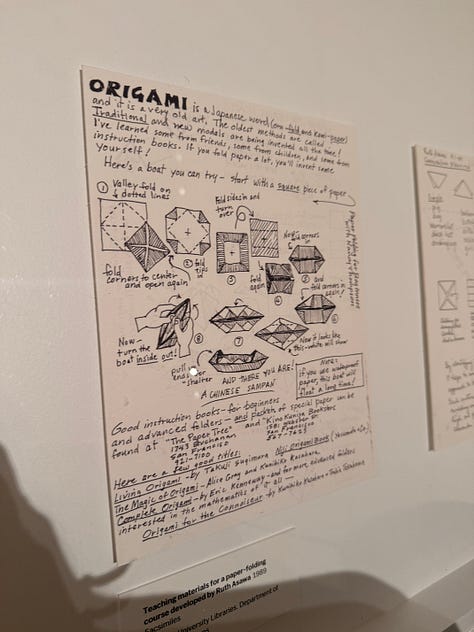 ORIGAMI is a Japanese word (oru-fold and kami-paper)
and it is a very old art. The oldest methods are called
Traditional and new models are being invented all the time!
I've learned some from friends, some from children, and some from
instruction books. If you fold paper a lot, you'll invent some
yourself!
Here's a boat you can try - start with a square piece of paper
1 Valley fold on
dotted lines
fold
corners to center
and open again
2 fold
tips
in
Fold sides in and
turn
over
3
fold
again
4
Now fold corners
in
5
and
fold corners in
again!
6
Now it looks like
this - white will show!
7
8
Now -
turn the
boat inside out!
pull
ends over
"shelter"
AND THERE YOU ARE!
A CHINESE SAMPAN
NOTE:
If you use waterproof
paper, this boat will
float a long time!
Good instruction books - for beginners
and advanced folders - and packets of special paper can be
found at "The Paper Tree" and "Kino Kuniya Bookstore
1743 Buchanan
San Francisco
921-7100
1581 Webster St.
San Francisco
567-7625
Here are a few good titles:
Living Origami - by Takuji Sugimura
The Magic of Origami - Alice Gray and Kunihiko Kasahara
Complete Origami - by Eric Kenneway - and for more advanced folders
interested in the mathematics of it all -
Origami for the Connoisseur by Kunihiko Kasahara - Toshie Takahama
Teaching materials for a paper-folding
course developed by Ruth Asawa 1989
Facsimiles
University Libraries. Department of